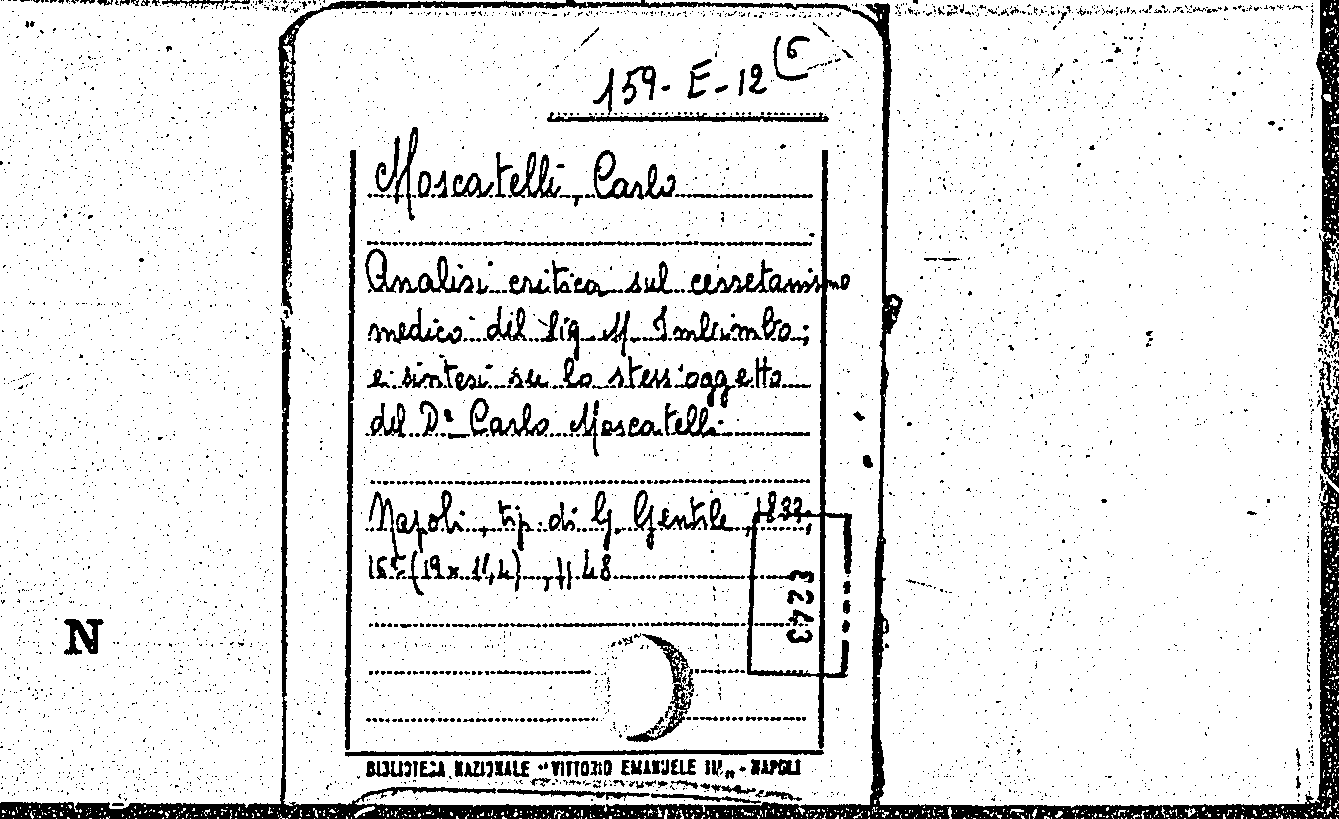 159-E-12 (6
Moscatelli, Carlo
Analisi critica sul cessetanismo
medico del sig. M. Imbimbo;
e sintesi su lo stess'oggetto
del Dr. Carlo Moscatelli.
Napoli, tip. di G. Gentile, 1832,
16° (19x11,4), pp 48
3243
N
BIBLIOTECA NAZIONALE "VITTORIO EMANUELE III" - NAPOLI